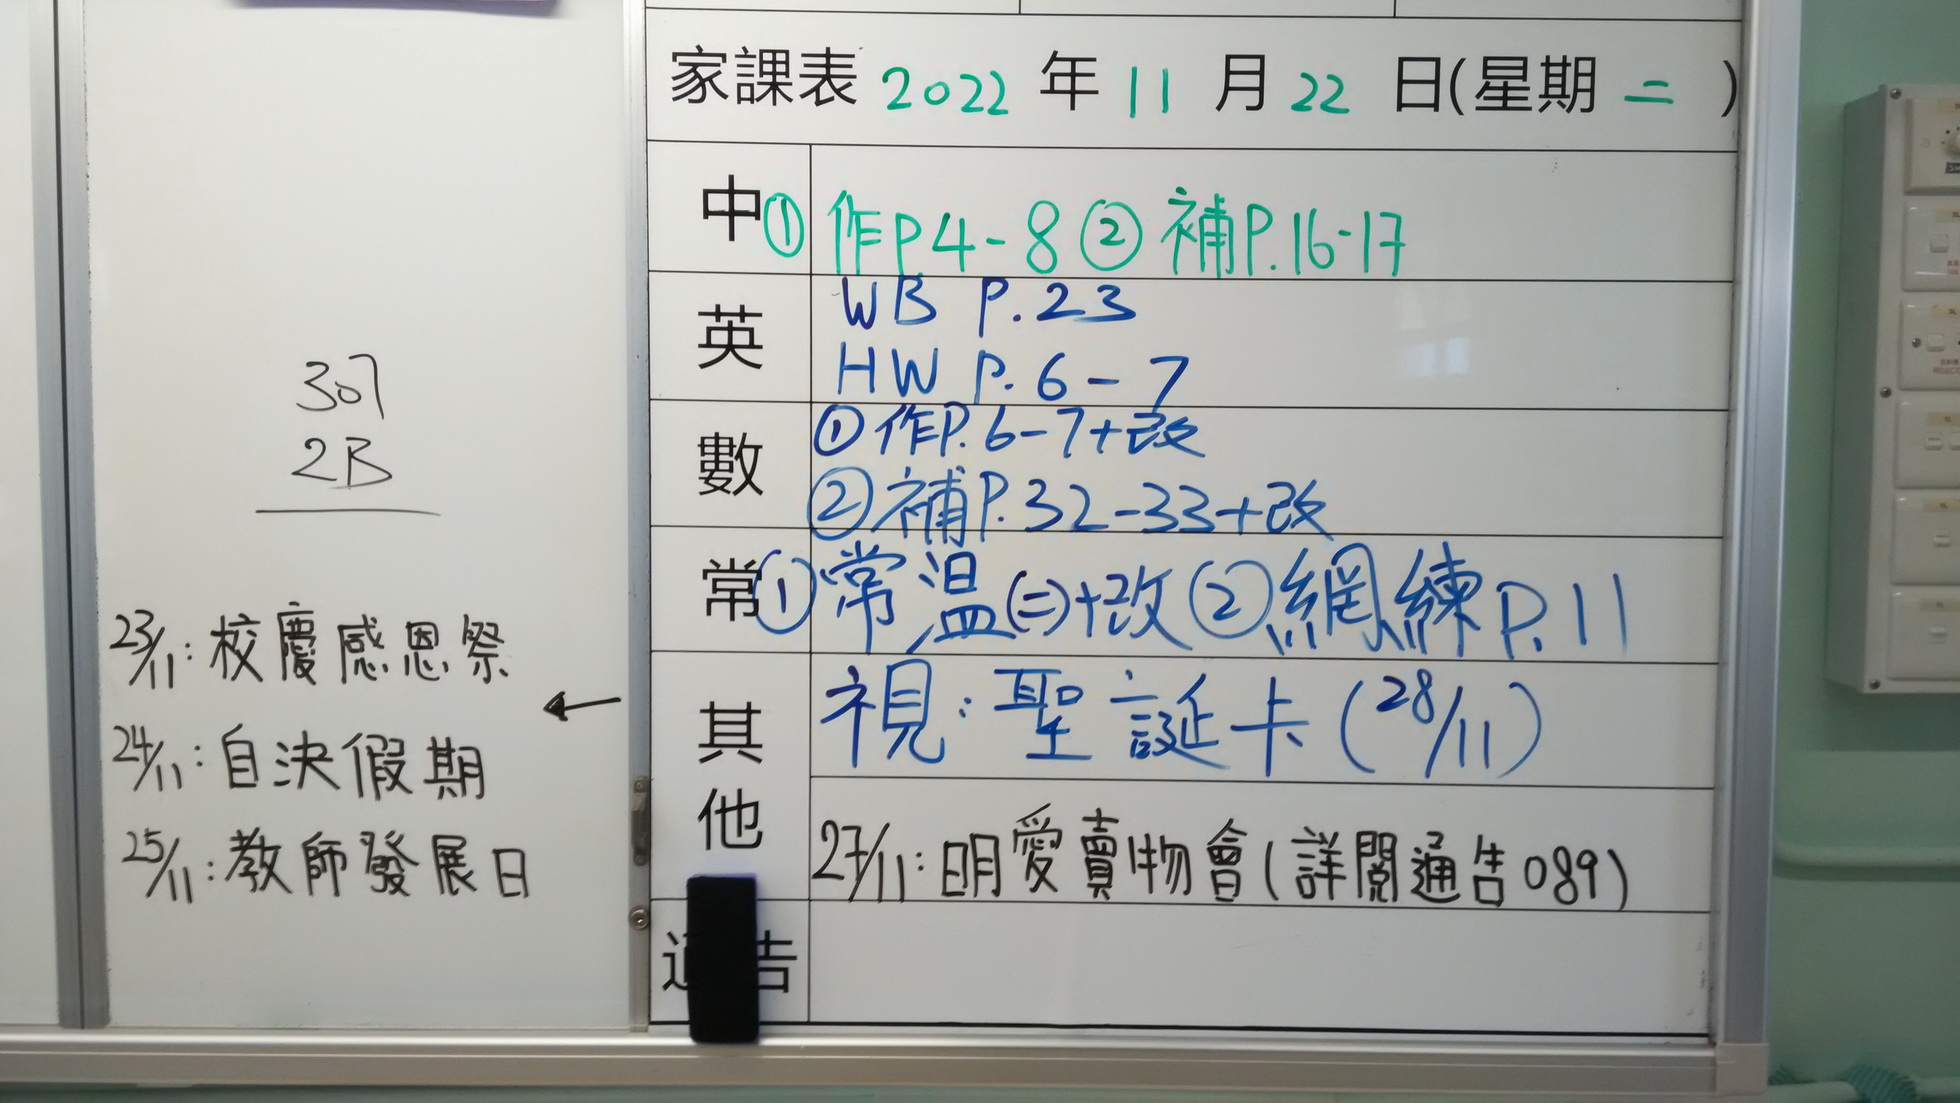 家課表 2022 年 11 月 22 日(星期 二 )
中 ① 作P.4-8 ② 補P.16-17
英 WB P.23
HW P.6-7
數 ① 作P.6-7+改
② 補P.32-33+改
常 ① 常溫(二)+改 ② 網練P.11
其他 視：聖誕卡(28/11)
27/11：明愛賣物會(詳閱通告089)
通告
307
2B
23/11：校慶感恩祭
24/11：自決假期
25/11：教師發展日